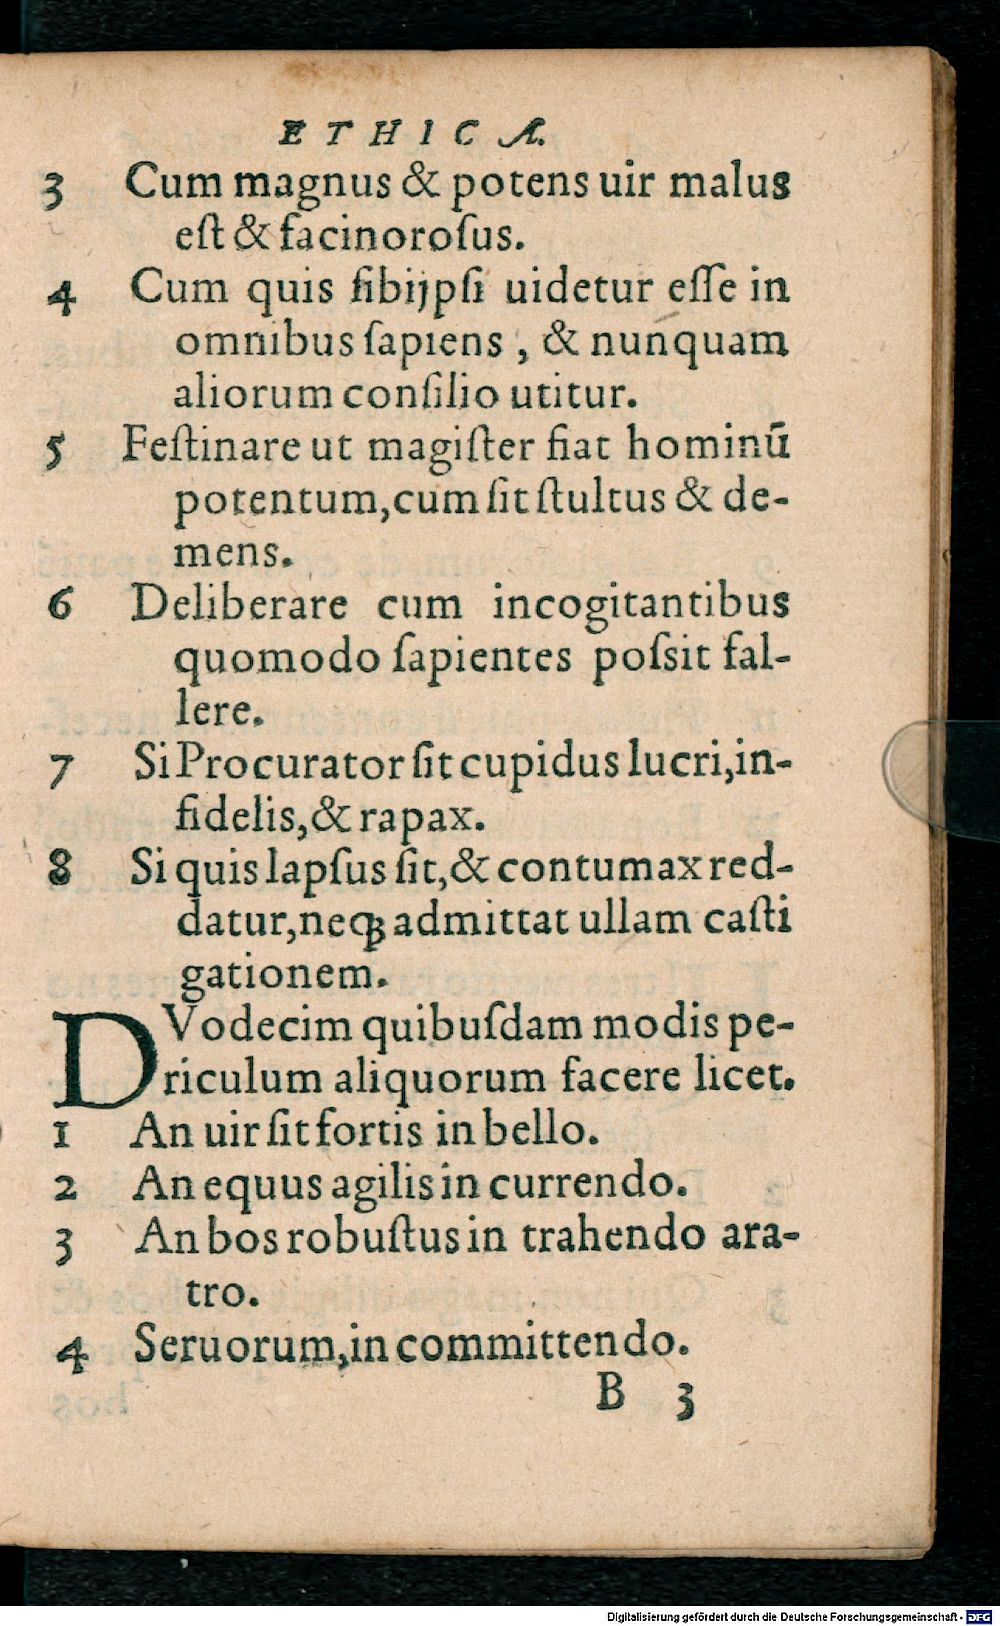 ETHICA.
3 Cum magnus & potens uir malus
eſt & facinoroſus.
4 Cum quis ſibijpſi uidetur eſſe in
omnibus ſapiens, & nunquam
aliorum conſilio utitur.
5 Feſtinare ut magiſter fiat hominū
potentum, cum ſit ſtultus & de-
mens.
6 Deliberare cum incogitantibus
quomodo ſapientes poſsit fal-
lere.
7 Si Procurator ſit cupidus lucri, in-
fidelis, & rapax.
8 Si quis lapſus ſit, & contumax red-
datur, neqꝫ admittat ullam caſti
gationem.
DVodecim quibuſdam modis pe-
riculum aliquorum facere licet.
1 An uir ſit fortis in bello.
2 An equus agilis in currendo.
3 An bos robuſtus in trahendo ara-
tro.
4 Seruorum, in committendo.
B 3
Digitalisierung gefördert durch die Deutsche Forschungsgemeinschaft - DFG